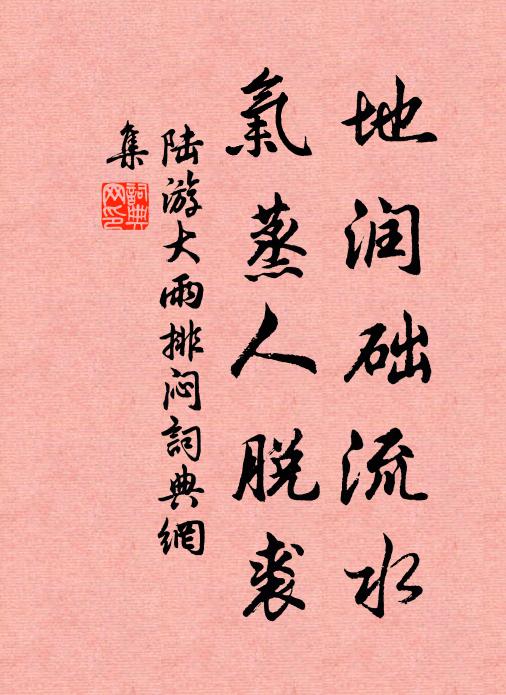 地润础流水
氣蒸人脱裘
陆游大雨排闷詞典網
集
詞典网印